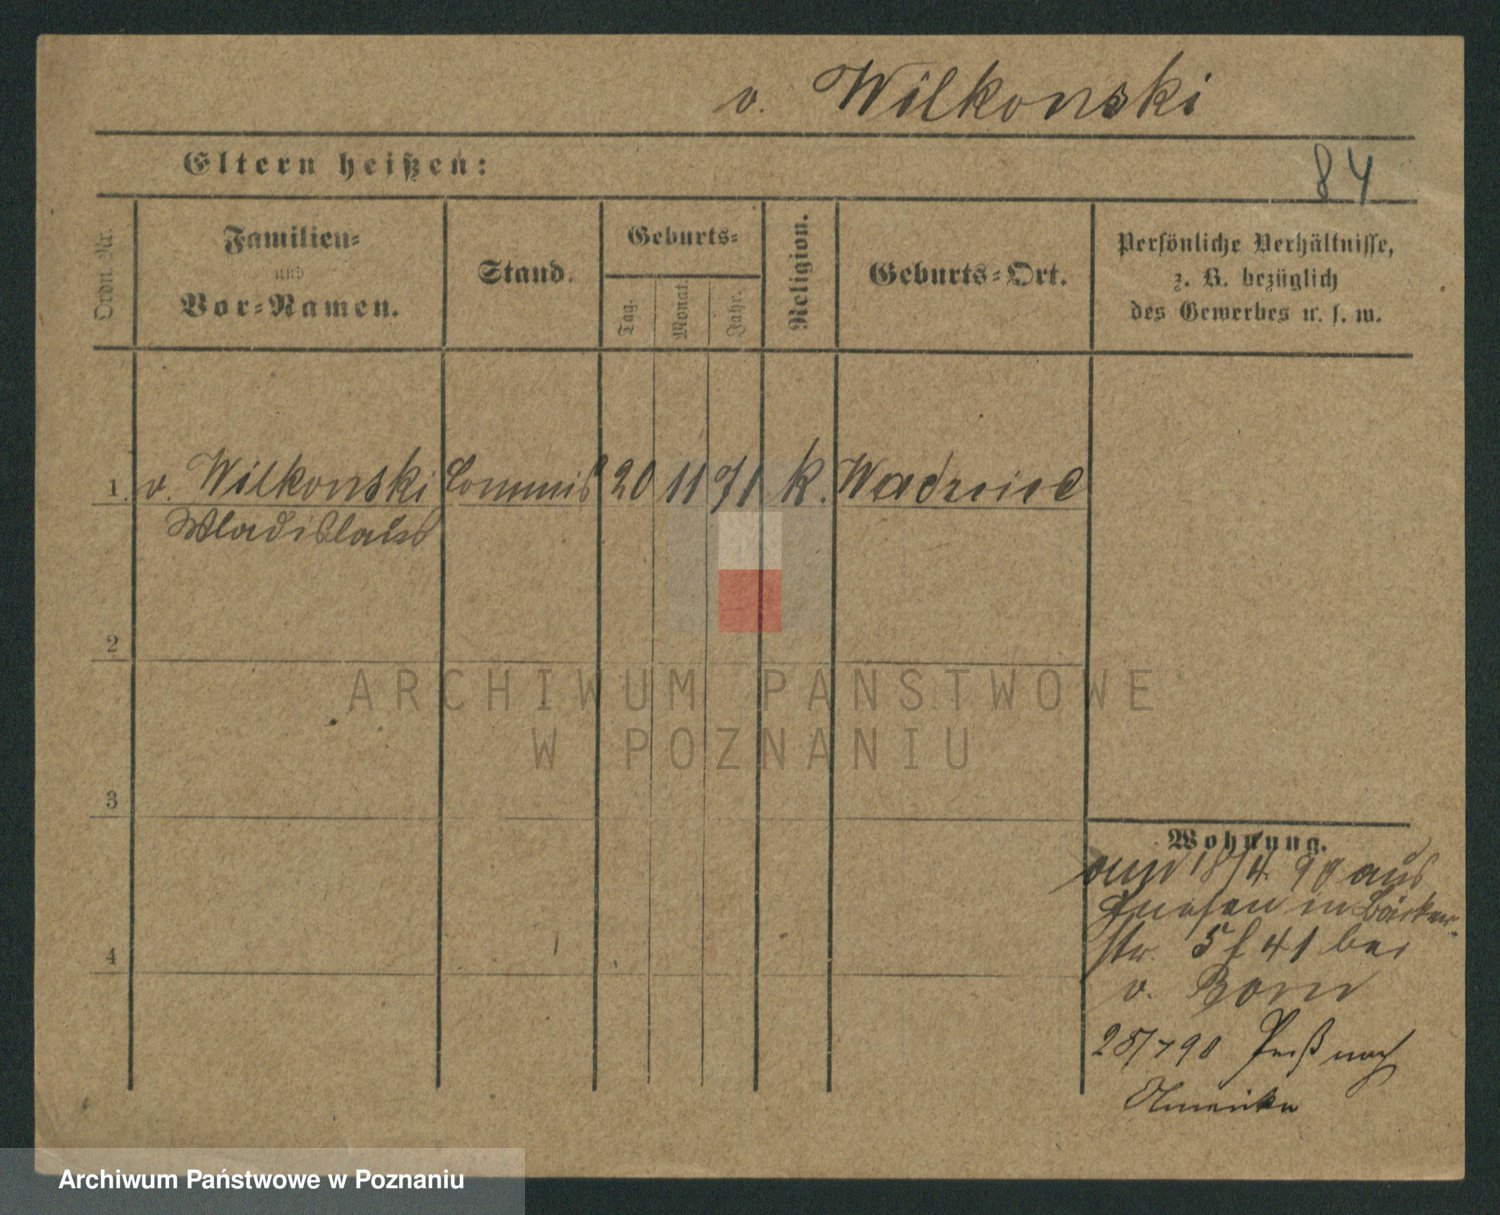 v. Wilkonski
Eltern heißen:
84
Ordn. Nr.
Familien-
und
Vor-Namen.
Stand.
Geburts-
Tag.
Monat.
Jahr.
Religion.
Geburts-Ort.
Persönliche Verhältnisse,
z. B. bezüglich
des Gewerbes u. s. w.
1. v. Wilkonski Commis 20 11 71 k.
Wladislaus
2
3
4
Wohnung.
18/4 90 aus
Gnesen in Bäcker-
str. 5 41 bei
v.
90 nach
Amerika
ARCHIWUM PAŃSTWOWE
W POZNANIU
Archiwum Państwowe w Poznaniu